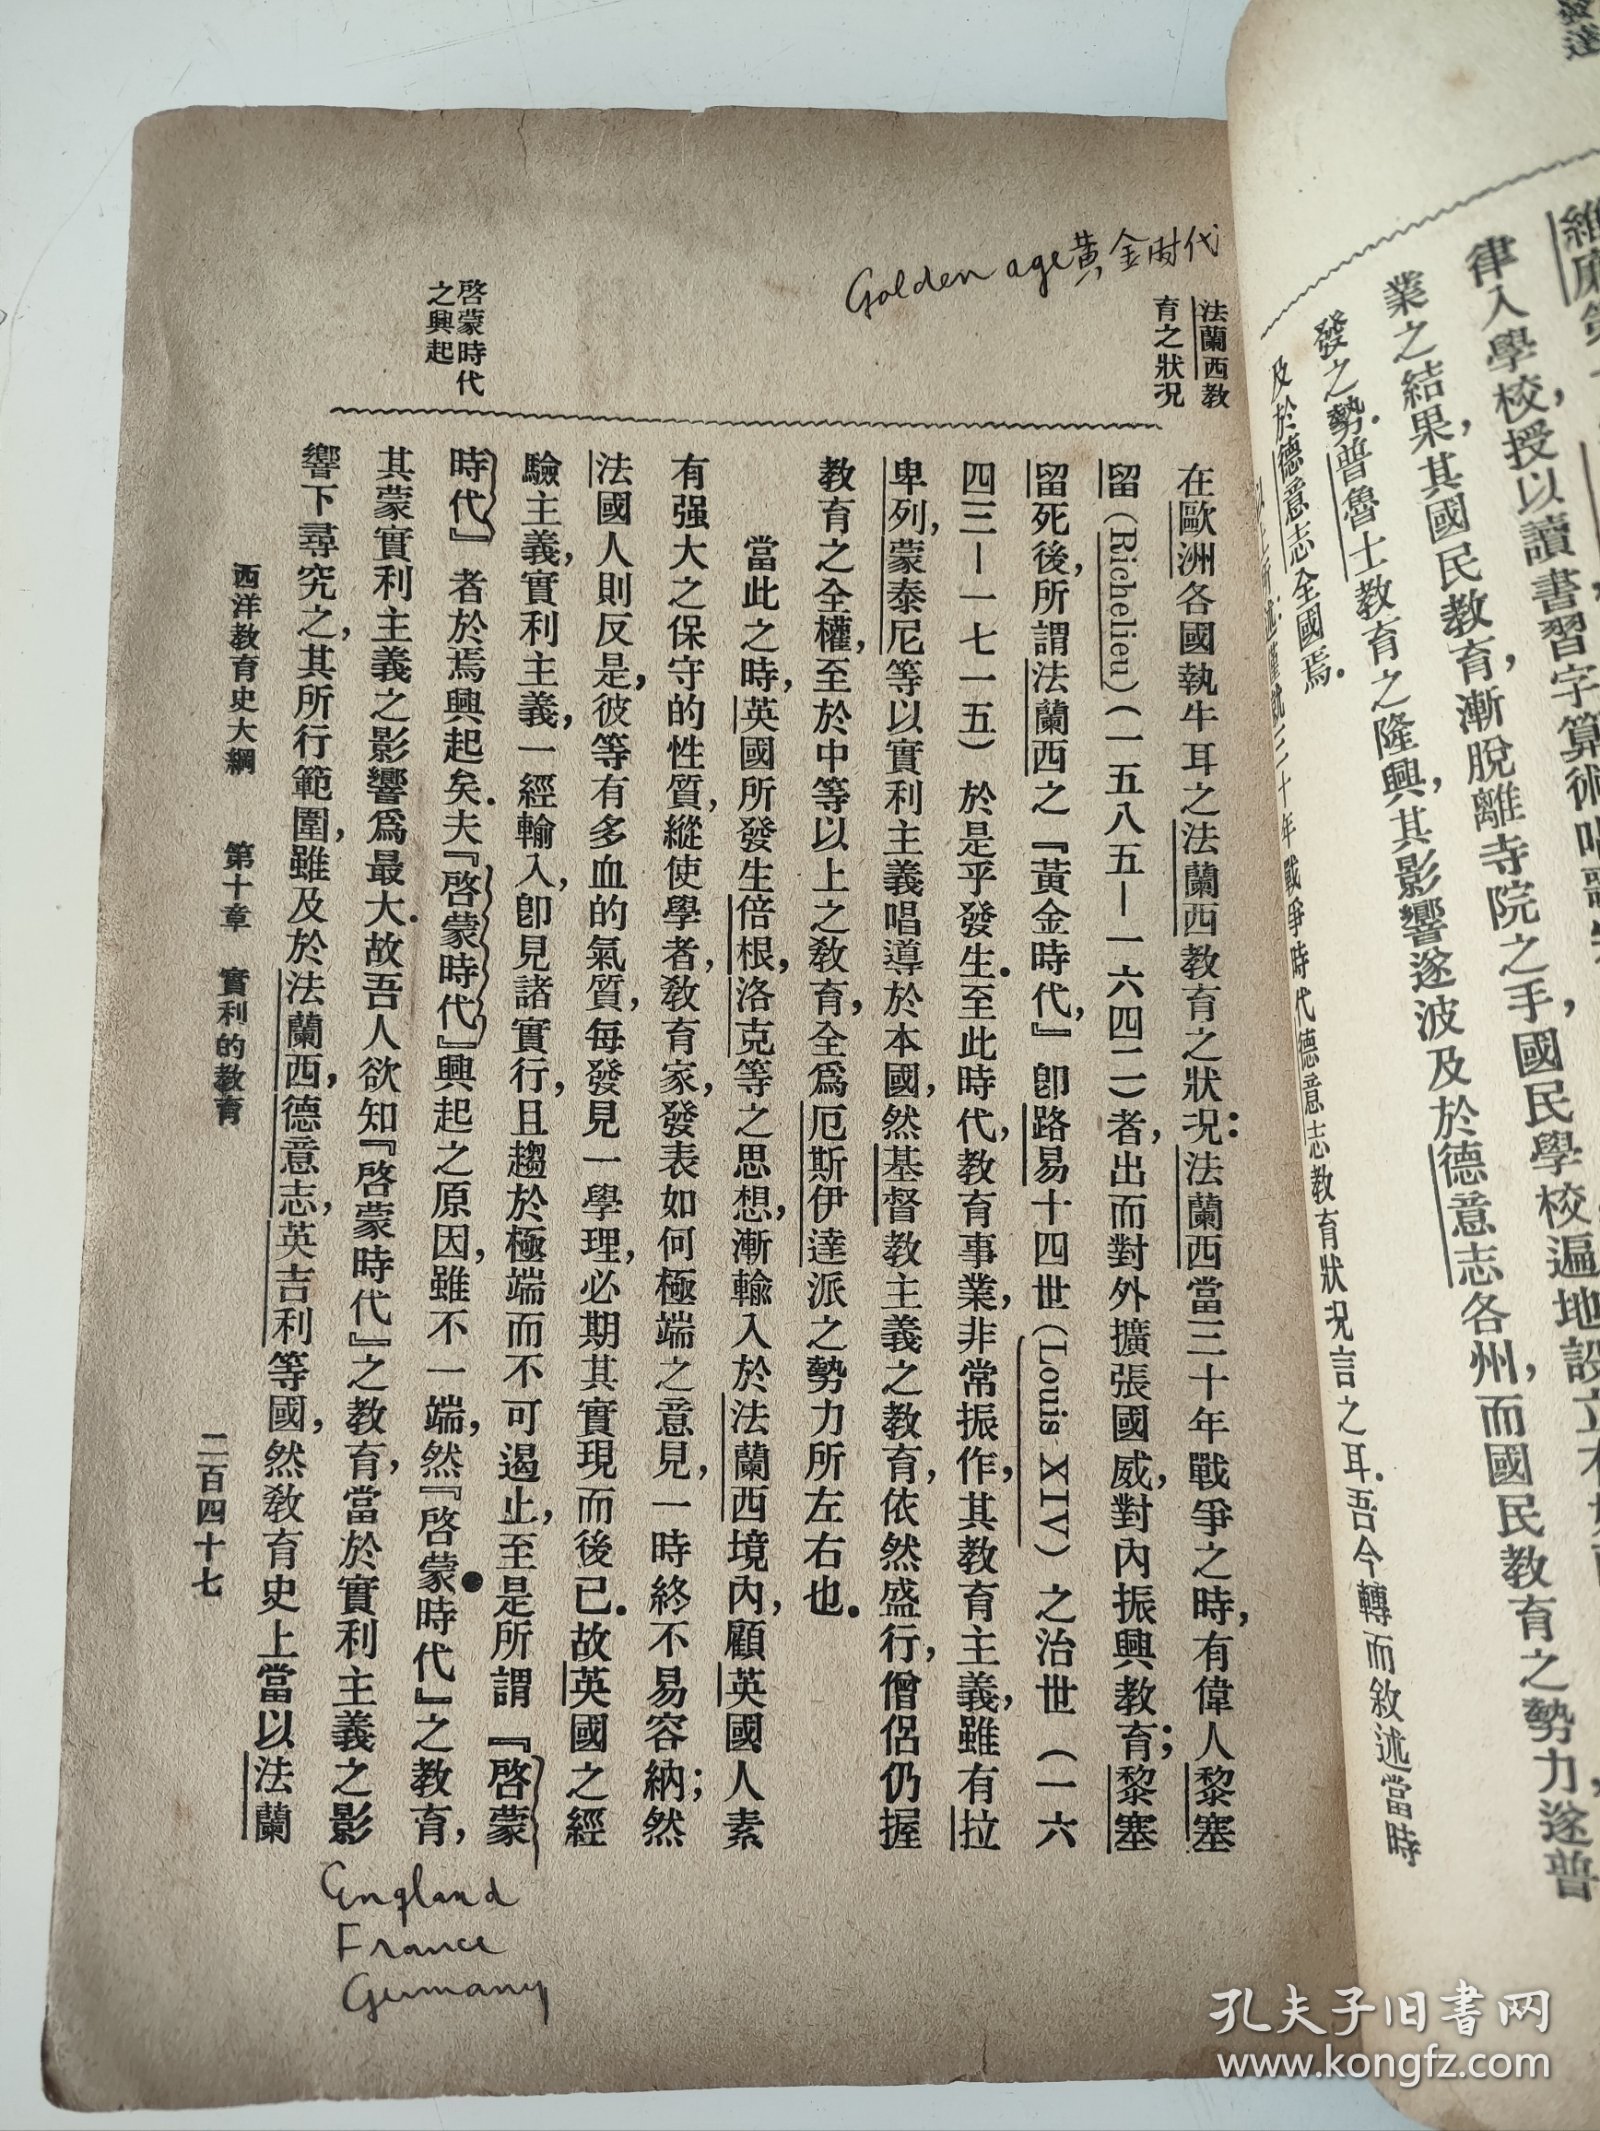 維廉第
律入學校，授以讀書習字算術唱歌
業之結果，其國民教育，漸脫離寺院之手，國民學校，遍地設立
發之勢．普魯士教育之隆興，其影響遂波及於德意志各州，而國民教育之勢力，遂普
及於德意志全國焉．
以上所述：僅就三十年戰爭時代德意志教育狀況言之耳．吾今轉而敘述當時
Golden age 黄金时代
法蘭西教
育之狀況
在歐洲各國執牛耳之法蘭西教育之狀況：法蘭西當三十年戰爭之時，有偉人黎塞
留（Richelieu）（一五八五—一六四二）者，出而對外擴張國威，對內振興教育；黎塞
留死後，所謂法蘭西之『黃金時代，』卽路易十四世（Louis XIV）之治世（一六
四三—一七一五）於是乎發生．至此時代，教育事業，非常振作，其教育主義，雖有拉
卑列，蒙泰尼等以實利主義唱導於本國，然基督教主義之教育，依然盛行，僧侶仍握
教育之全權，至於中等以上之教育，全爲厄斯伊達派之勢力所左右也．
當此之時，英國所發生倍根，洛克等之思想，漸輸入於法蘭西境內，顧英國人素
有强大之保守的性質，縱使學者，教育家，發表如何極端之意見，一時終不易容納；然
法國人則反是，彼等有多血的氣質，每發見一學理，必期其實現而後已．故英國之經
驗主義，實利主義，一經輸入，卽見諸實行，且趨於極端而不可遏止，至是所謂『啓蒙
時代』者於焉興起矣．夫『啓蒙時代』興起之原因，雖不一端，然『啓蒙時代』之教育，
其蒙實利主義之影響爲最大．故吾人欲知『啓蒙時代』之教育，當於實利主義之影
響下尋究之，其所行範圍，雖及於法蘭西，德意志，英吉利等國，然教育史上當以法蘭
啓蒙時代
之興起
西洋教育史大綱　第十章　實利的教育　二百四十七
England
France
Germany
孔夫子旧书网
www.kongfz.com